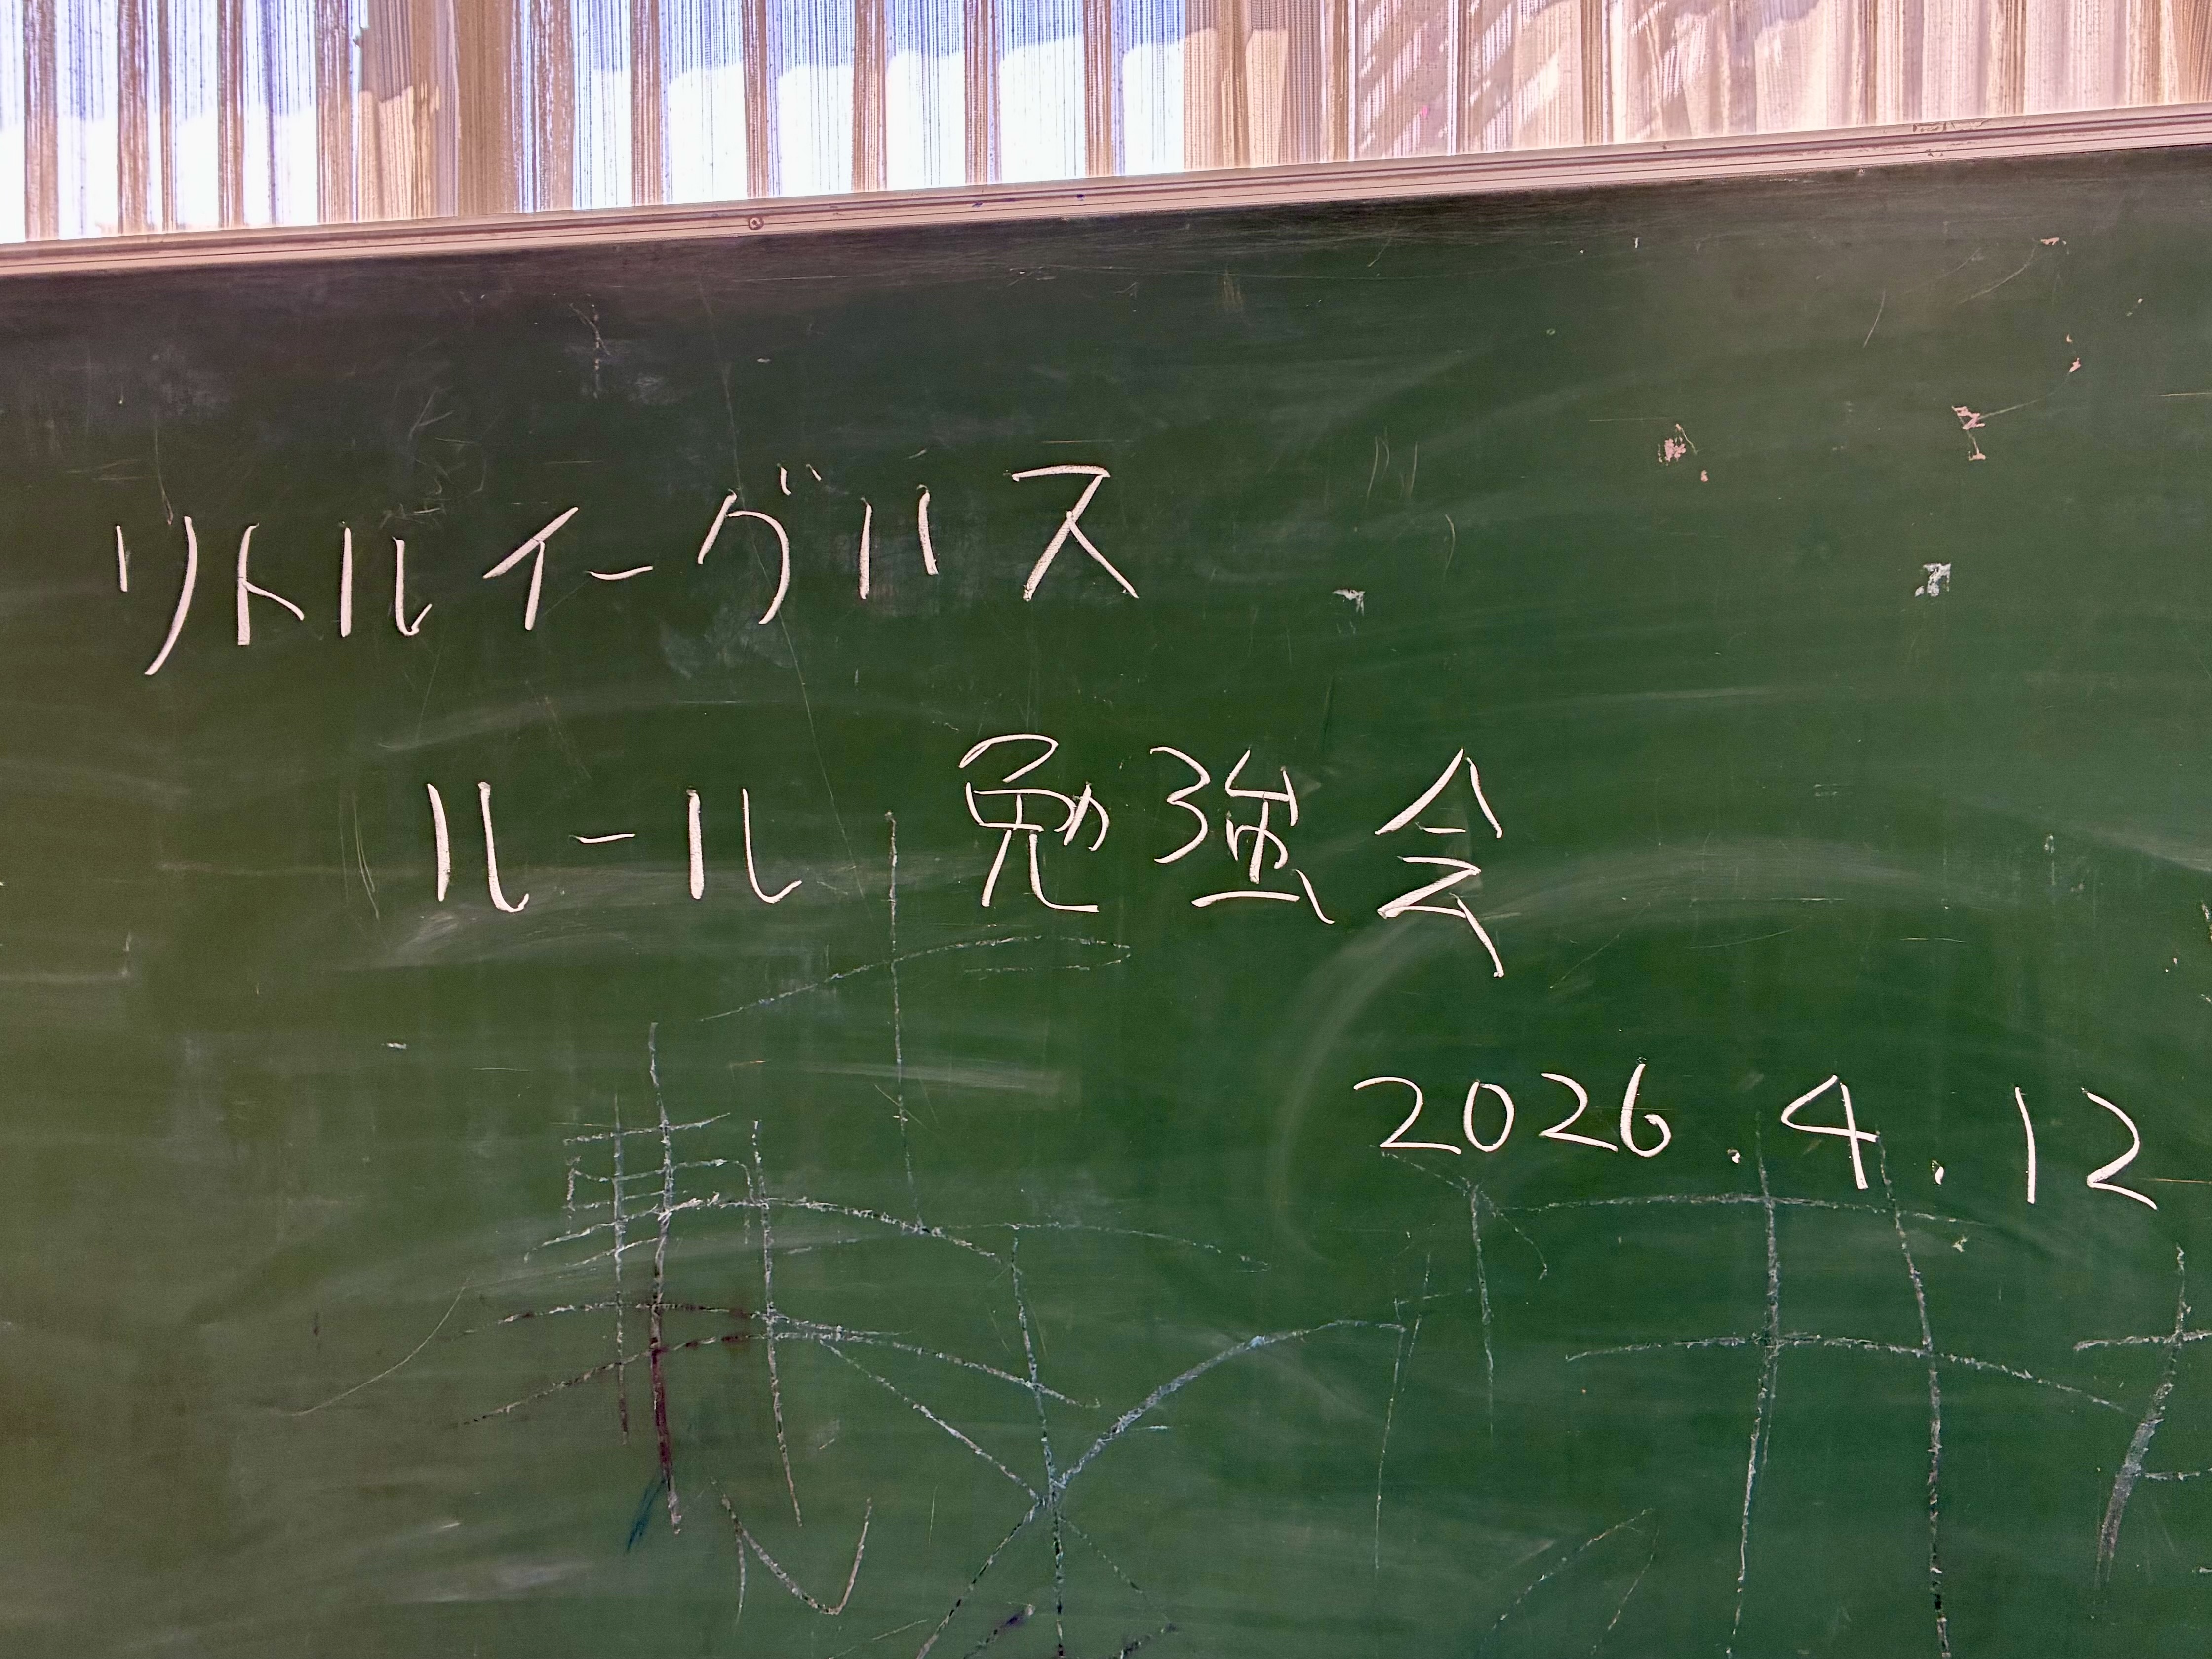 リトルイーグルス
ルール勉強会
2026.4.12